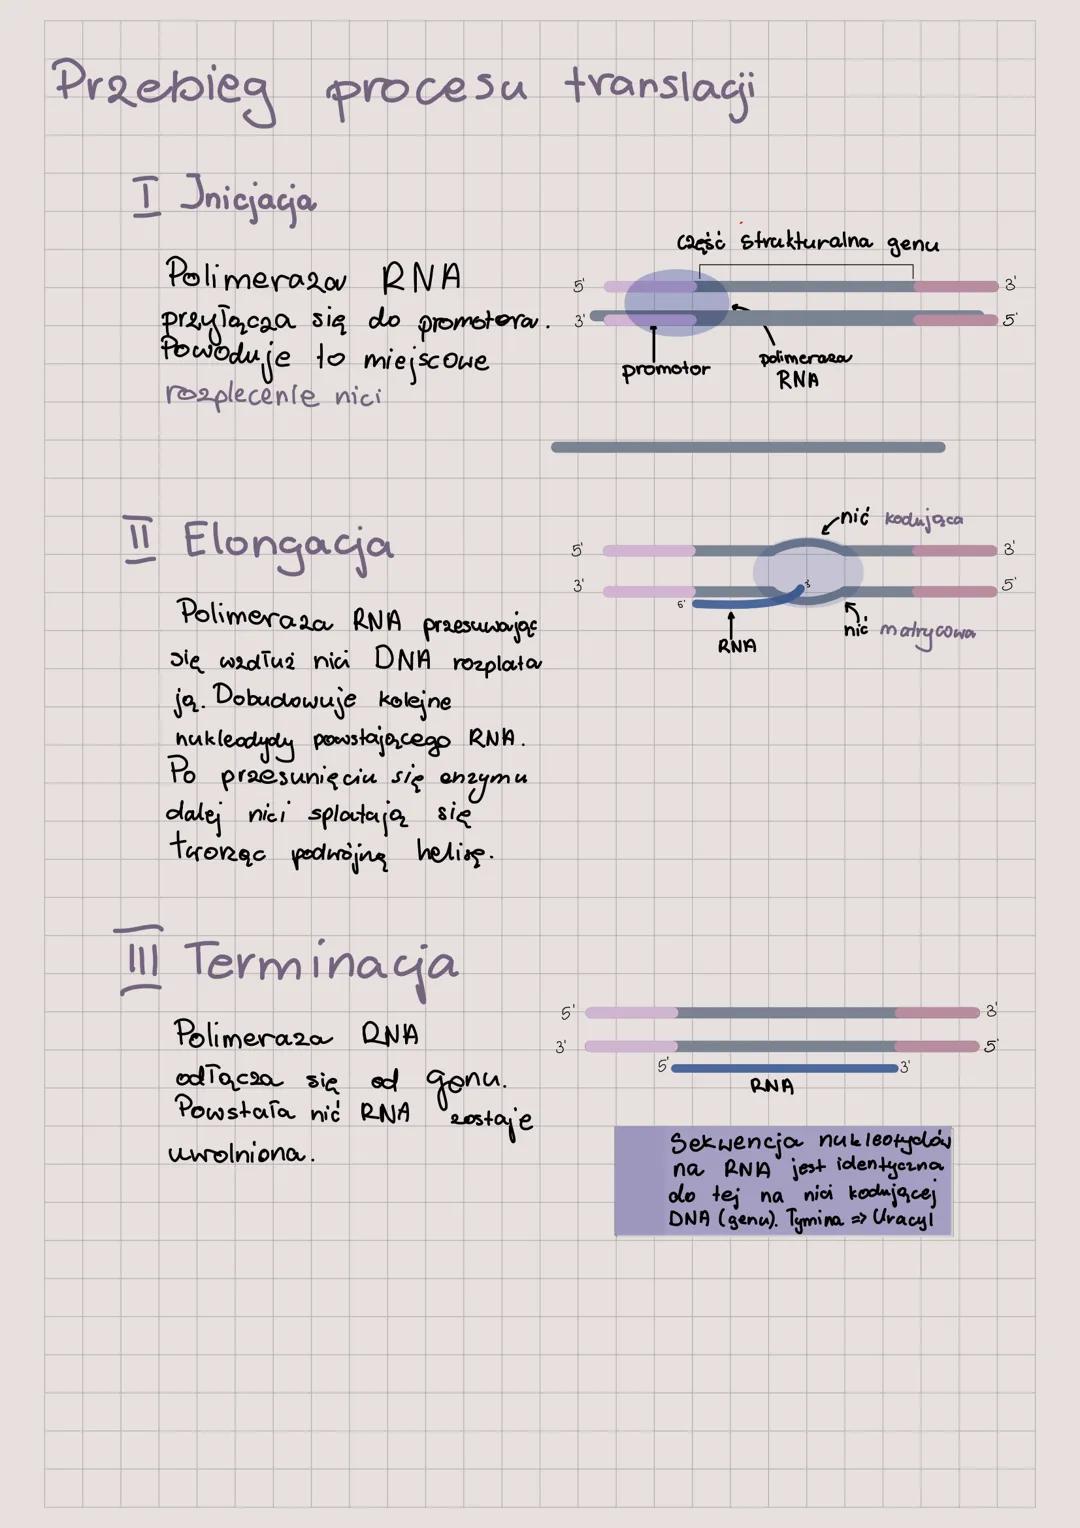 Przebieg procesu translacji
I Inicjacja
Polimeraza RNA
przyłącza się do promotora.
Powoduje to miejscowe
rozplecenie nici
część strukturalna genu
5' 3'
3' 5'
promotor
polimeraza
RNA
II Elongacja
Polimeraza RNA przesuwając
się wzdłuż nici DNA rozplata
ją. Dobudowuje kolejne
nukleodydy powstającego RNA.
Po przesunięciu się enzymu
dalej nici splatają się
tworząc podwójną helisę.
nić kodująca
5' 3'
3' 5'
5' 3'
RNA
nić matrycowa
III Terminacja
Polimeraza RNA
odłącza się od genu.
Powstała nić RNA zostaje
uwolniona.
5' 3'
3' 5'
5' 3'
RNA
Sekwencja nukleotydów
na RNA jest identyczna
do tej na nici kodującej
DNA (genu). Tymina => Uracyl